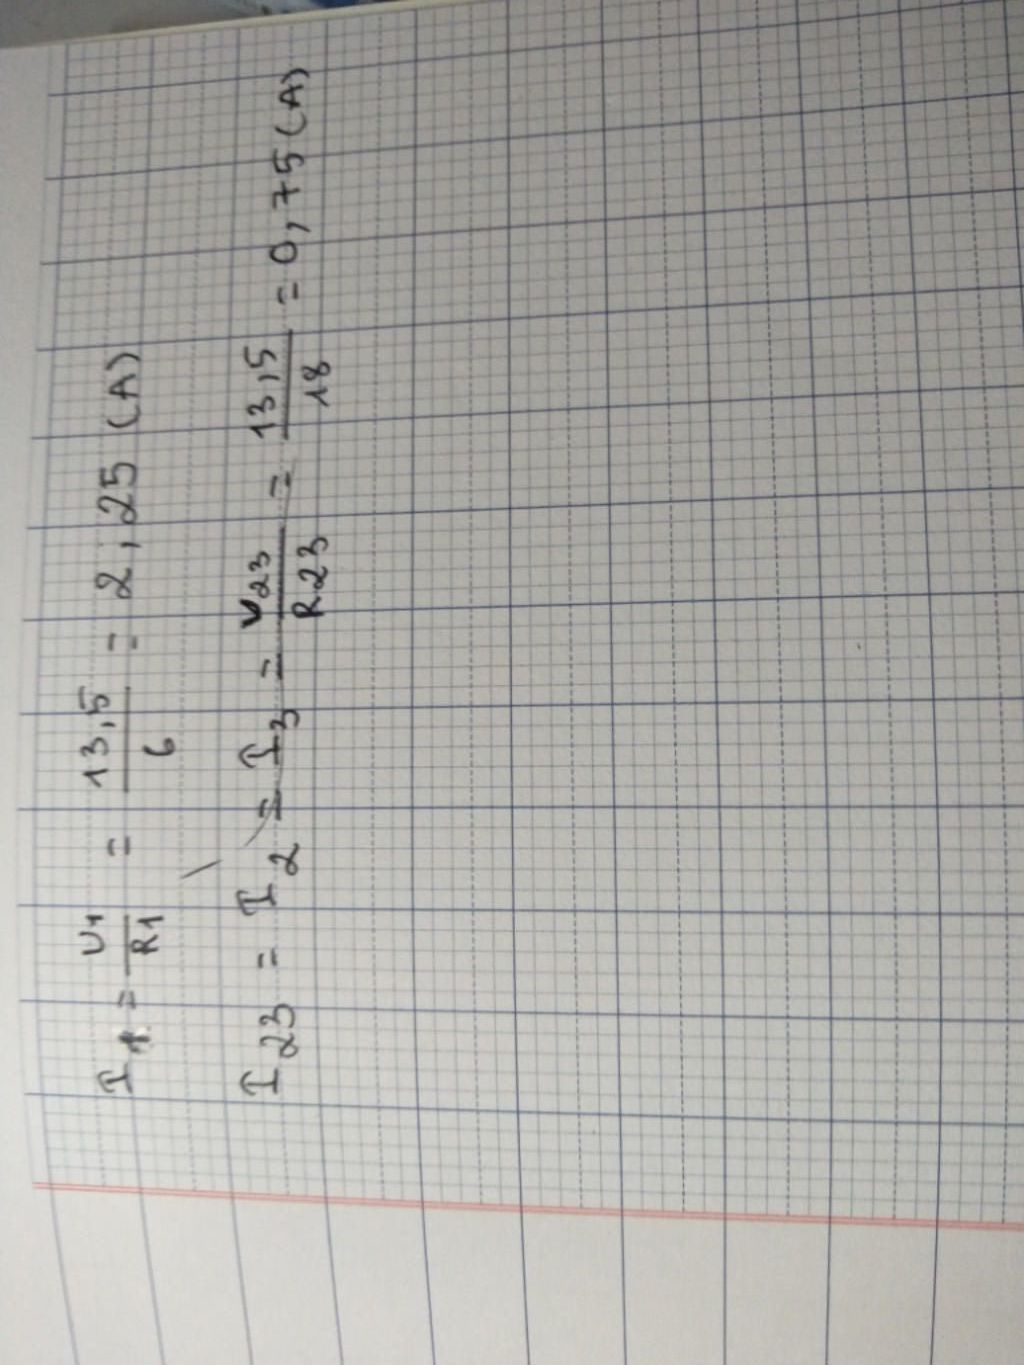 I1 = U1/R1 = 13,5/6 = 2,25 (A)
I23 = I2 = I3 = U23/R23 = 13,5/18 = 0,75 (A)